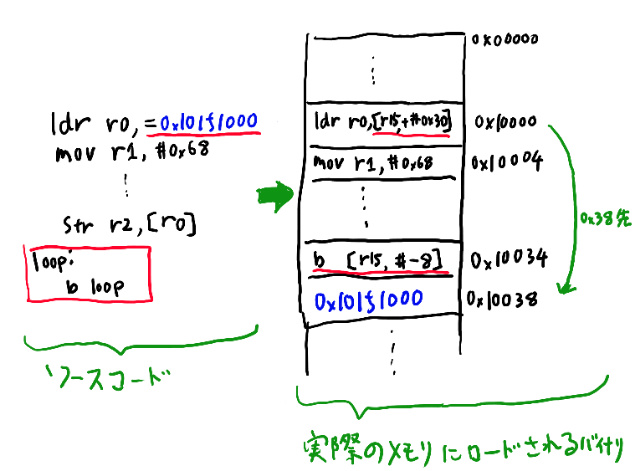 ldr r0, =0x101f1000
mov r1, #0x68
⋮
str r2, [r0]
loop:
b loop
ソースコード
0x00000
⋮
ldr r0,[r15,+#0x30]
0x10000
mov r1, #0x68
0x10004
⋮
0x38先
b [r15, #-8]
0x10034
0x101f1000
0x10038
⋮
実際のメモリにロードされるバイナリ